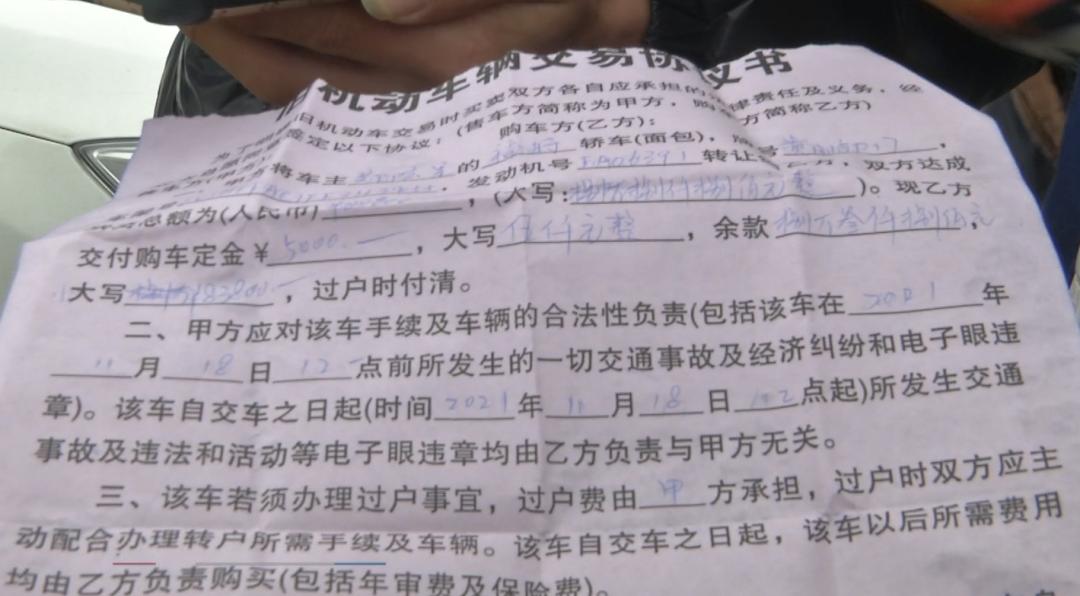 旧机动车辆交易协议书
旧机动车交易时买卖双方各自应承担的法律责任及义务，经
定以下协议：(售车方简称为甲方，购车方简称乙方)
购车方(乙方)：
将车主 的 轿车(面包)，
发动机号 转让 ，双方达成
总额为(人民币) ，(大写：捌万捌仟捌佰元整)。现乙方
交付购车定金￥5000.一，大写伍仟元整，余款捌万叁仟捌佰元，
大写 83800.一，过户时付清。
二、甲方应对该车手续及车辆的合法性负责(包括该车在2021年
11月18日12点前所发生的一切交通事故及经济纠纷和电子眼违
章)。该车自交车之日起(时间2021年11月18日12点起)所发生交通
事故及违法和活动等电子眼违章均由乙方负责与甲方无关。
三、该车若须办理过户事宜，过户费由甲方承担，过户时双方应主
动配合办理转户所需手续及车辆。该车自交车之日起，该车以后所需费用
均由乙方负责购买(包括年审费及保险费)。